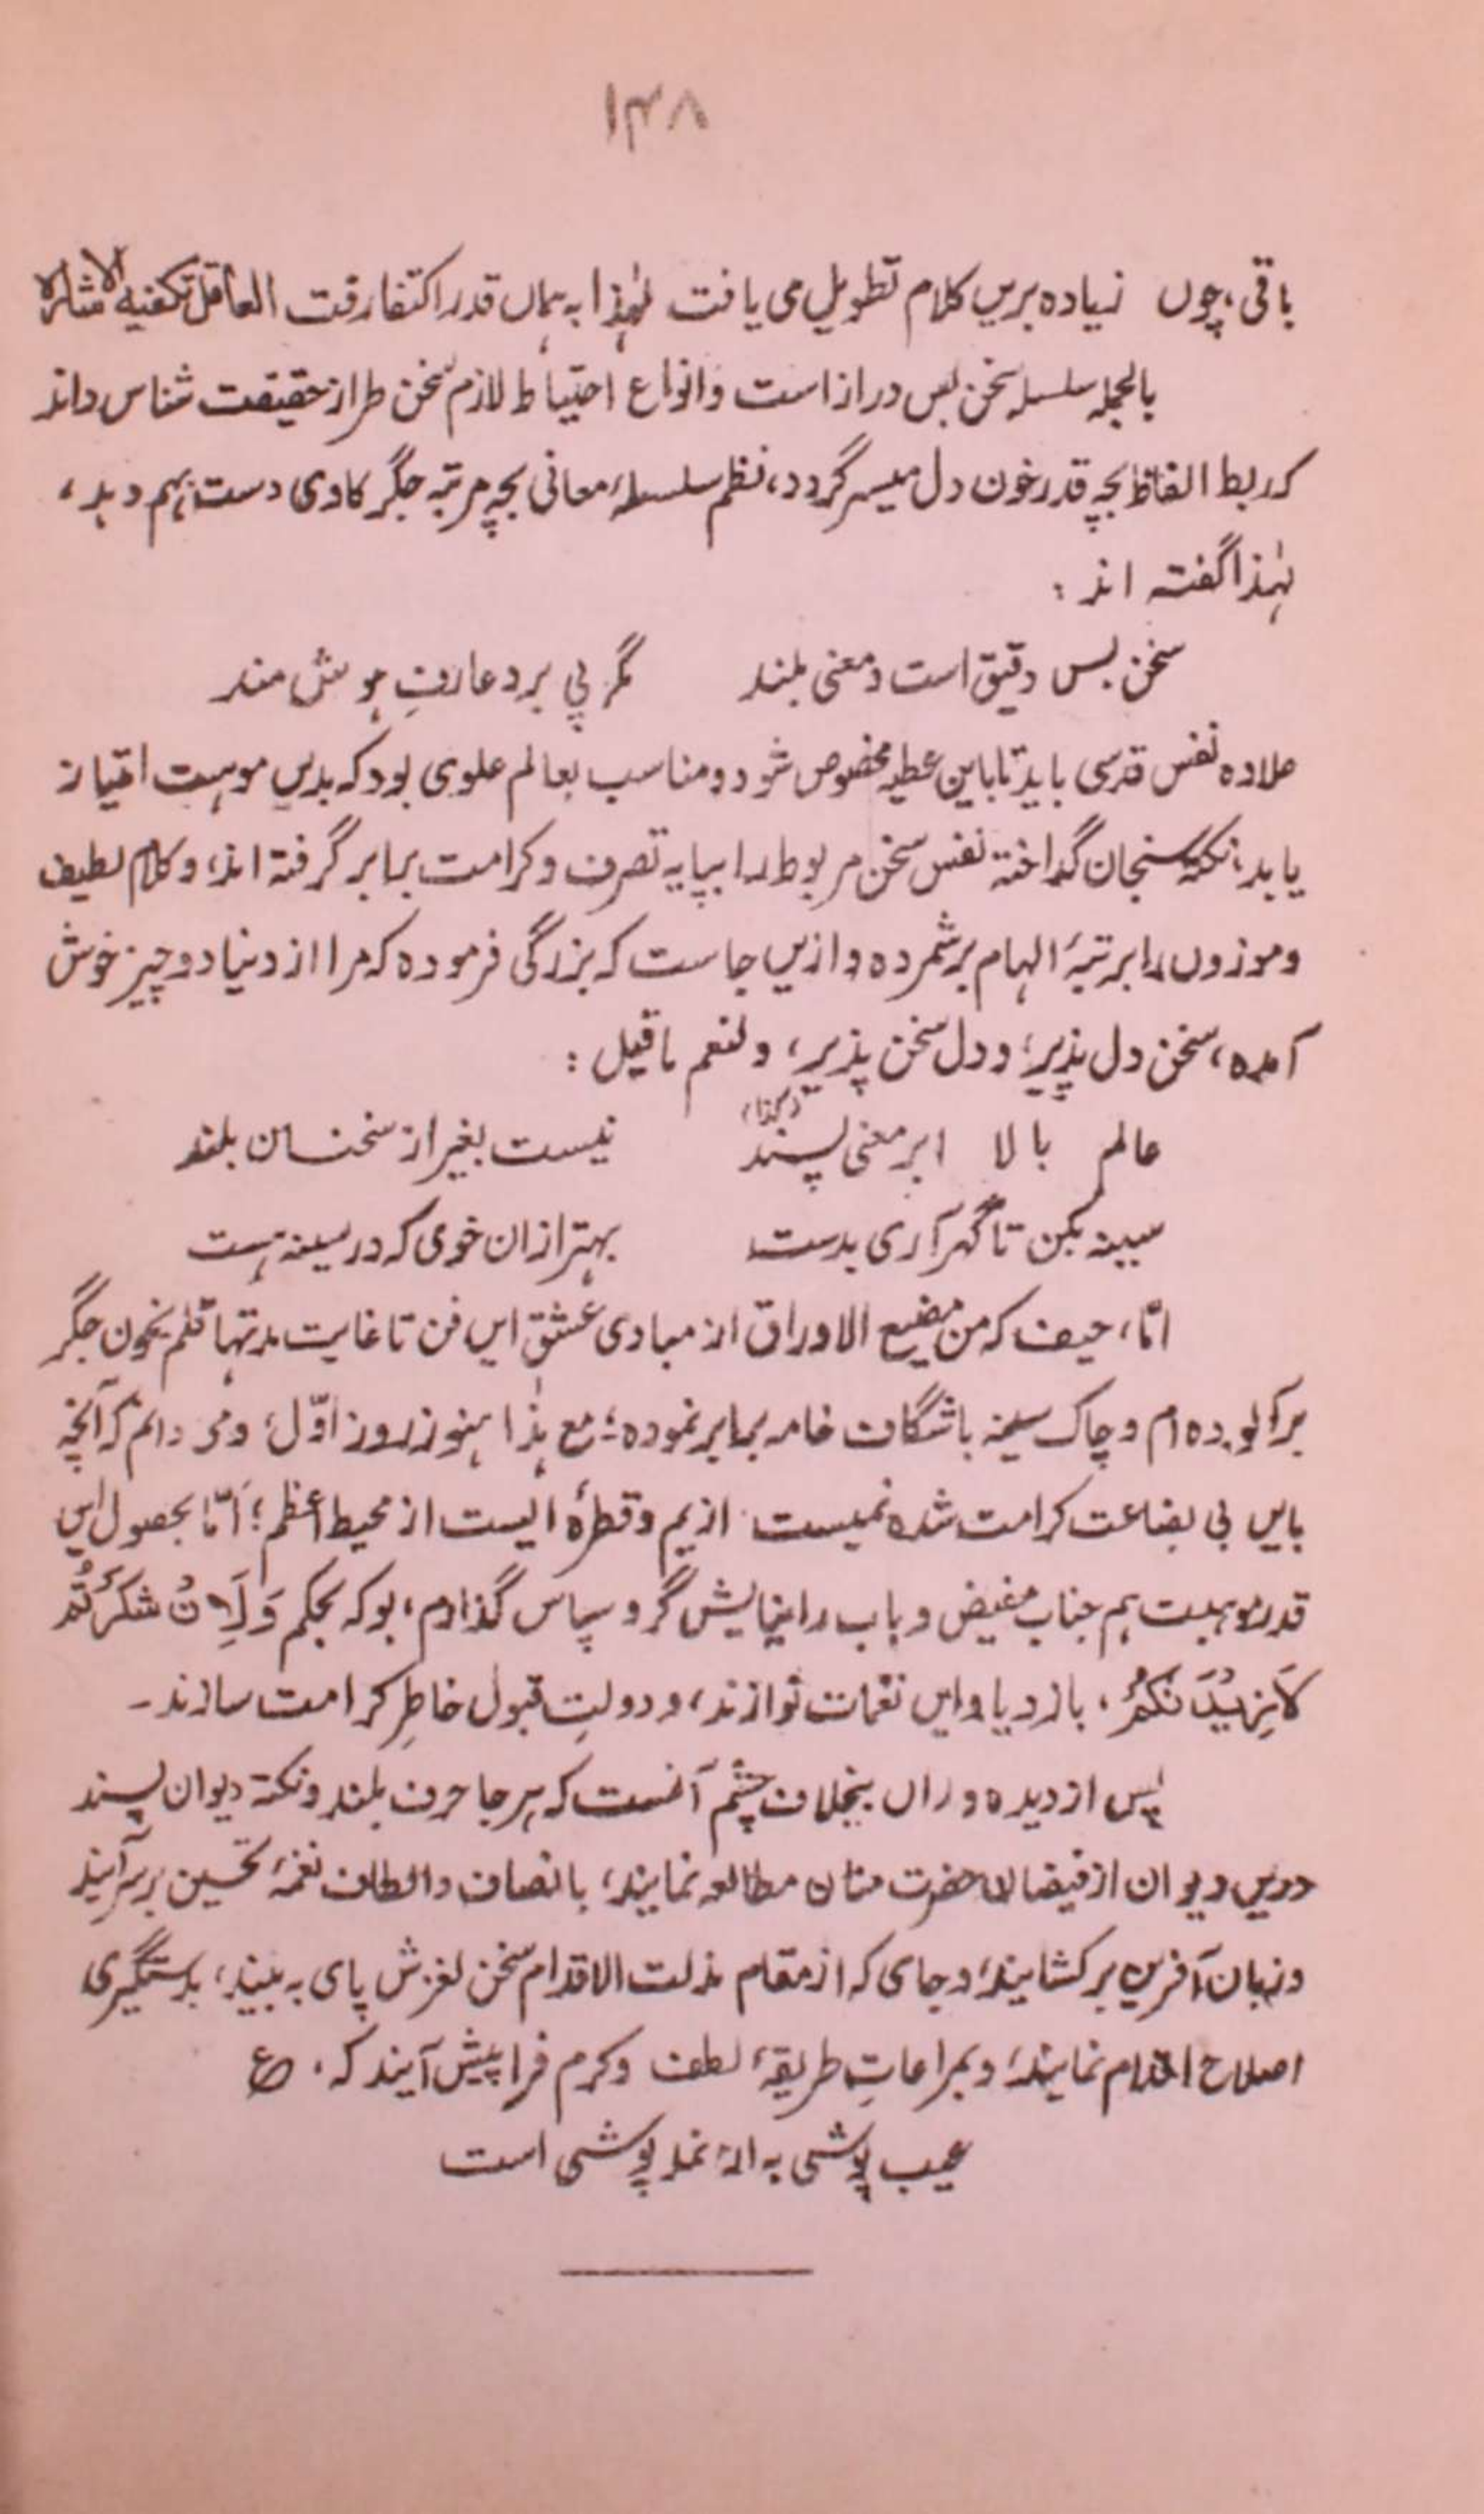 ۱۴۸
باقی، چوں زیادہ بریں کلام تطویل می یافت لہٰذا بہ ہماں قدر اکتفا رفت العاقل تکفیہ الاشارہ
بالجملہ سلسلہ سخن بس دراز است و انواع احتیاط لازم سخن طراز حقیقت شناس داند
کہ ربط الفاظ بچہ قدر خون دل میسر گردد، نظم سلسلۂ معانی بچہ مرتبہ جگر کاوی دست بہم دہد،
لہٰذا گفتہ اند :
سخن بس دقیق است و معنی بلند مگر پی برد عارفِ ہوش مند
علاوہ نفس قدسی باید تا باین عطیہ مخصوص شود و مناسب بعالم علوی بود کہ بدیں موہبت امتیاز
یابد، نکتہ سنجان گداختہ نفس سخن مربوط را بپایہ تصرف و کرامت برابر گرفتہ اند، و کلام لطیف
و موزوں را برتبۂ الہام برشمردہ و ازیں جاست کہ بزرگی فرمودہ کہ مرا از دنیا دو چیز خوش
آمدہ، سخن دل پذیر، و دل سخن پذیر، ولنعم ماقیل :
عالم بالا ابر معنی پسند (کذا) نیست بغیر از سخنان بلند
سینہ بکن تا گہر آری بدست بہتر ازان خوی کہ در سینہ ہست
امّا، حیف کہ من مضیع الاوراق از مبادی عشق ایں فن تا غایت مدتہا قلم بخون جگر
برآلودہ ام و چاک سینہ باشگاف خامہ برابر نمودہ؛ مع ہٰذا ہنوز روز اوّل، و می دانم کہ آنچہ
بایں بی بضاعت کرامت شدہ نمیست از یم و قطرۂ ایست از محیط اعظم؛ اَمّا بحصول ایں
قدر موہبت ہم جناب مفیض وہاب را نیایش گر و سپاس گذارم، بوکہ بحکم وَلَاِنْ شَکَرْتُمْ
لَاَزِیْدَنَّکُمْ، بازدیاد ایں نغمات نوازند، و دولتِ قبول خاطِر کرامت سازند۔
پس از دیدہ وراں بیخلاف چشم آنست کہ ہرجا حرف بلند و نکتہ دیوان پسند
دریں دیوان از فیضان حضرت منان مطالعہ نمایند، بانصاف و الطاف نغمۂ تحسین برسرآیند
و زبان آفرین برکشایند، و جای کہ از مقام مذلت الاقدام سخن لغزش پای بہ بیند، بدستگیری
اصلاح اقدام نمایند، و بمراعاتِ طریقۂ لطف و کرم فرا پیش آیند کہ، ع
عیب پوشی بہ از نمد پوشی است